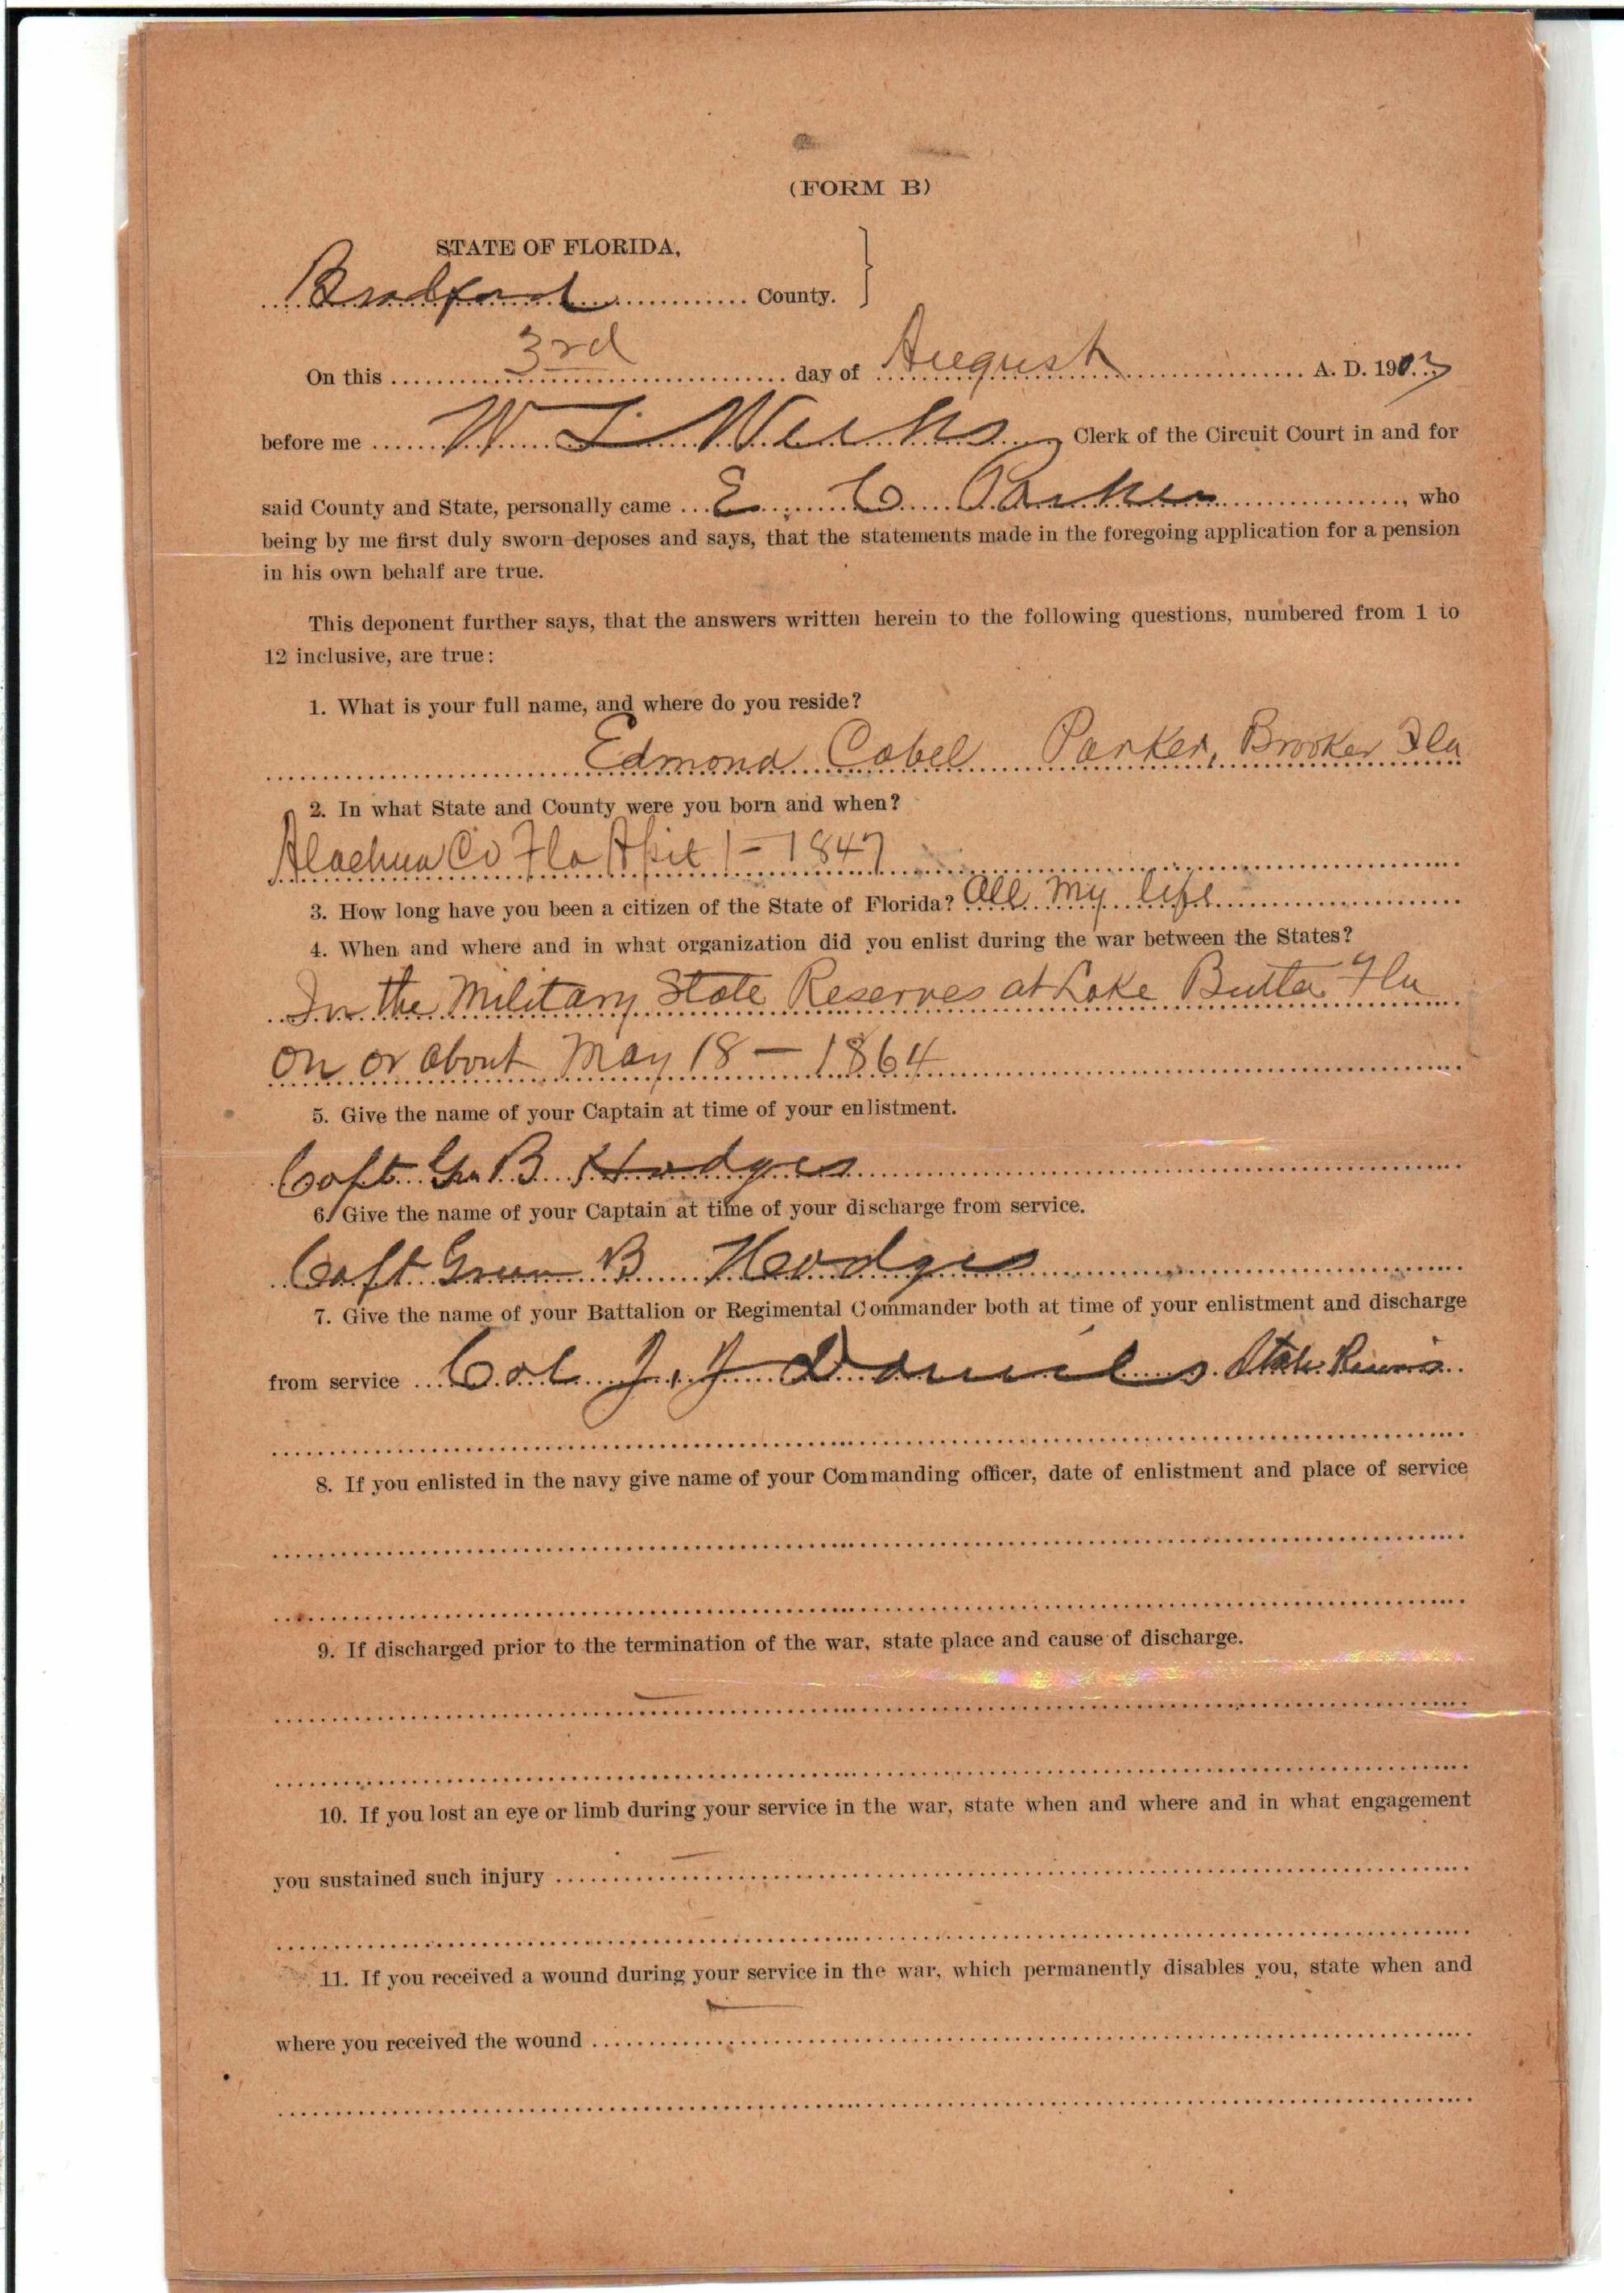 (FORM B)
STATE OF FLORIDA,
Bradford County.
On this 3rd day of August A. D. 190
before me W Clerk of the Circuit Court in and for
said County and State, personally came E. C Parker, who
being by me first duly sworn deposes and says, that the statements made in the foregoing application for a pension
in his own behalf are true.
This deponent further says, that the answers written herein to the following questions, numbered from 1 to
12 inclusive, are true:
1. What is your full name, and where do you reside?
Edmond Cobel Parker, Brooker Fla
2. In what State and County were you born and when?
Alachua Co Fla 1 - 1847
3. How long have you been a citizen of the State of Florida? All my life
4. When and where and in what organization did you enlist during the war between the States?
In the Military State Reserves at Lake Butler Fla
on or about May 18 - 1864
5. Give the name of your Captain at time of your enlistment.
Capt B Hodges
6. Give the name of your Captain at time of your discharge from service.
Capt Green B Hodges
7. Give the name of your Battalion or Regimental Commander both at time of your enlistment and discharge
from service Col J. J Daniels State
8. If you enlisted in the navy give name of your Commanding officer, date of enlistment and place of service
9. If discharged prior to the termination of the war, state place and cause of discharge.
10. If you lost an eye or limb during your service in the war, state when and where and in what engagement
you sustained such injury
11. If you received a wound during your service in the war, which permanently disables you, state when and
where you received the wound